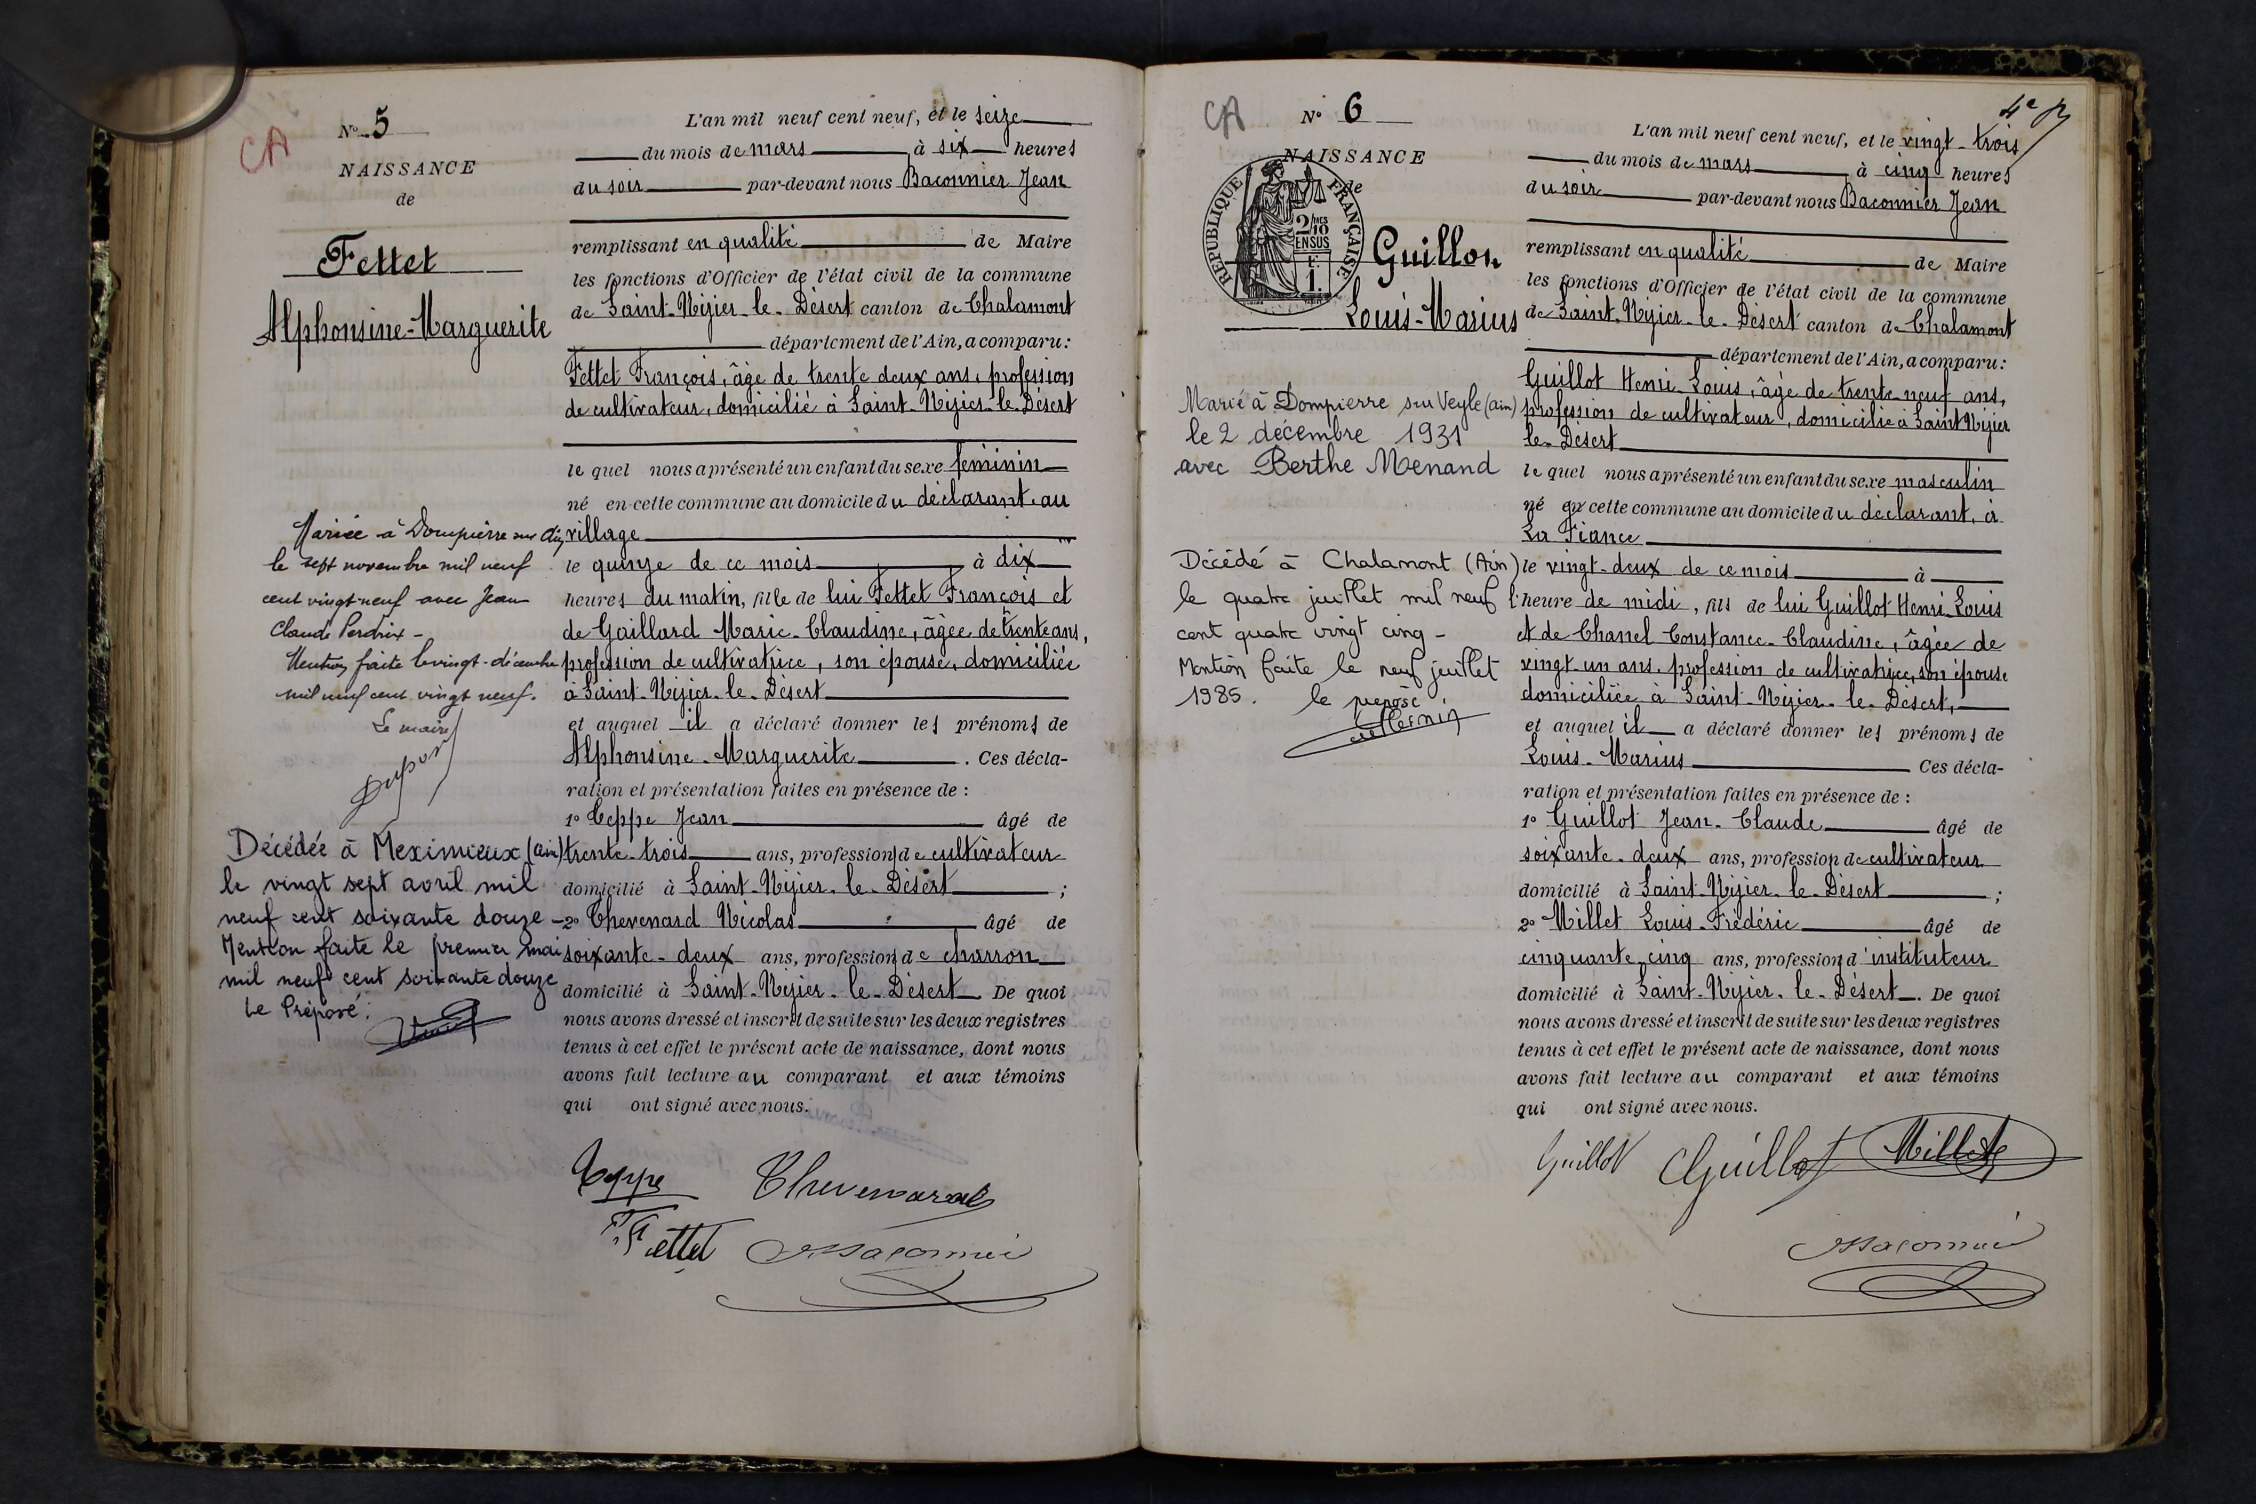 CA
N° 5
NAISSANCE
de
Fettet
Alphonsine-Marguerite
Mariée à Dompierre sur Ain,
le sept novembre mil neuf
cent vingt-neuf avec Jean
Claude Perdrix -
Mention faite le vingt décembre
mil neuf cent vingt neuf.
Le maire
Décédée à Meximieux (Ain)
le vingt sept avril mil
neuf cent soixante douze -
Mention faite le premier mai
mil neuf cent soixante douze
Le Préposé :
L'an mil neuf cent neuf, et le seize
du mois de mars à six heures
du soir par-devant nous Baconnier Jean
remplissant en qualité de Maire
les fonctions d'Officier de l'état civil de la commune
de Saint-Nizier-le-Désert canton de Chalamont
département de l'Ain, a comparu:
Fettet François, âgé de trente deux ans, profession
de cultivateur, domicilié à Saint-Nizier-le-Désert
le quel nous a présenté un enfant du sexe féminin
né en cette commune au domicile du déclarant au
village
le quinze de ce mois à dix
heures du matin, fille de lui Fettet François et
de Gaillard Marie-Claudine, âgée de trente ans,
profession de cultivatrice, son épouse, domiciliée
à Saint-Nizier-le-Désert
et auquel il a déclaré donner les prénoms de
Alphonsine-Marguerite. Ces décla-
ration et présentation faites en présence de :
1° Teppe Jean âgé de
trente-trois ans, profession de cultivateur
domicilié à Saint-Nizier-le-Désert ;
2° Thevenard Nicolas âgé de
soixante-deux ans, profession de charron
domicilié à Saint-Nizier-le-Désert De quoi
nous avons dressé et inscrit de suite sur les deux registres
tenus à cet effet le présent acte de naissance, dont nous
avons fait lecture au comparant et aux témoins
qui ont signé avec nous.
Teppe Thevenard
F. Fettet Baconnier
4e
CA
N° 6
NAISSANCE
de
REPUBLIQUE FRANÇAISE
2/10
EN SUS
1.
Guillon
Louis-Marius
Marié à Dompierre sur Veyle (Ain)
le 2 décembre 1931
avec Berthe Menand
Décédé à Chalamont (Ain)
le quatre juillet mil neuf
cent quatre vingt cinq -
Mention faite le neuf juillet
1985. le préposé,
L'an mil neuf cent neuf, et le vingt-trois
du mois de mars à cinq heures
du soir par-devant nous Baconnier Jean
remplissant en qualité de Maire
les fonctions d'Officier de l'état civil de la commune
de Saint-Nizier-le-Désert canton de Chalamont
département de l'Ain, a comparu:
Guillot Henri Louis, âgé de trente-neuf ans,
profession de cultivateur, domicilié à Saint Nizier
le-Désert
le quel nous a présenté un enfant du sexe masculin
né en cette commune au domicile du déclarant, à
La Fiance
le vingt-deux de ce mois à
l'heure de midi, fils de lui Guillot Henri-Louis
et de Chanel Constance-Claudine, âgée de
vingt-un ans, profession de cultivatrice, son épouse
domiciliée à Saint-Nizier-le-Désert,
et auquel il a déclaré donner les prénoms de
Louis-Marius Ces décla-
ration et présentation faites en présence de :
1° Guillot Jean-Claude âgé de
soixante-deux ans, profession de cultivateur
domicilié à Saint-Nizier-le-Désert ;
2° Millet Louis-Frédéric âgé de
cinquante-cinq ans, profession d'instituteur
domicilié à Saint-Nizier-le-Désert. De quoi
nous avons dressé et inscrit de suite sur les deux registres
tenus à cet effet le présent acte de naissance, dont nous
avons fait lecture au comparant et aux témoins
qui ont signé avec nous.
Guillot Guillot Millet
Baconnier